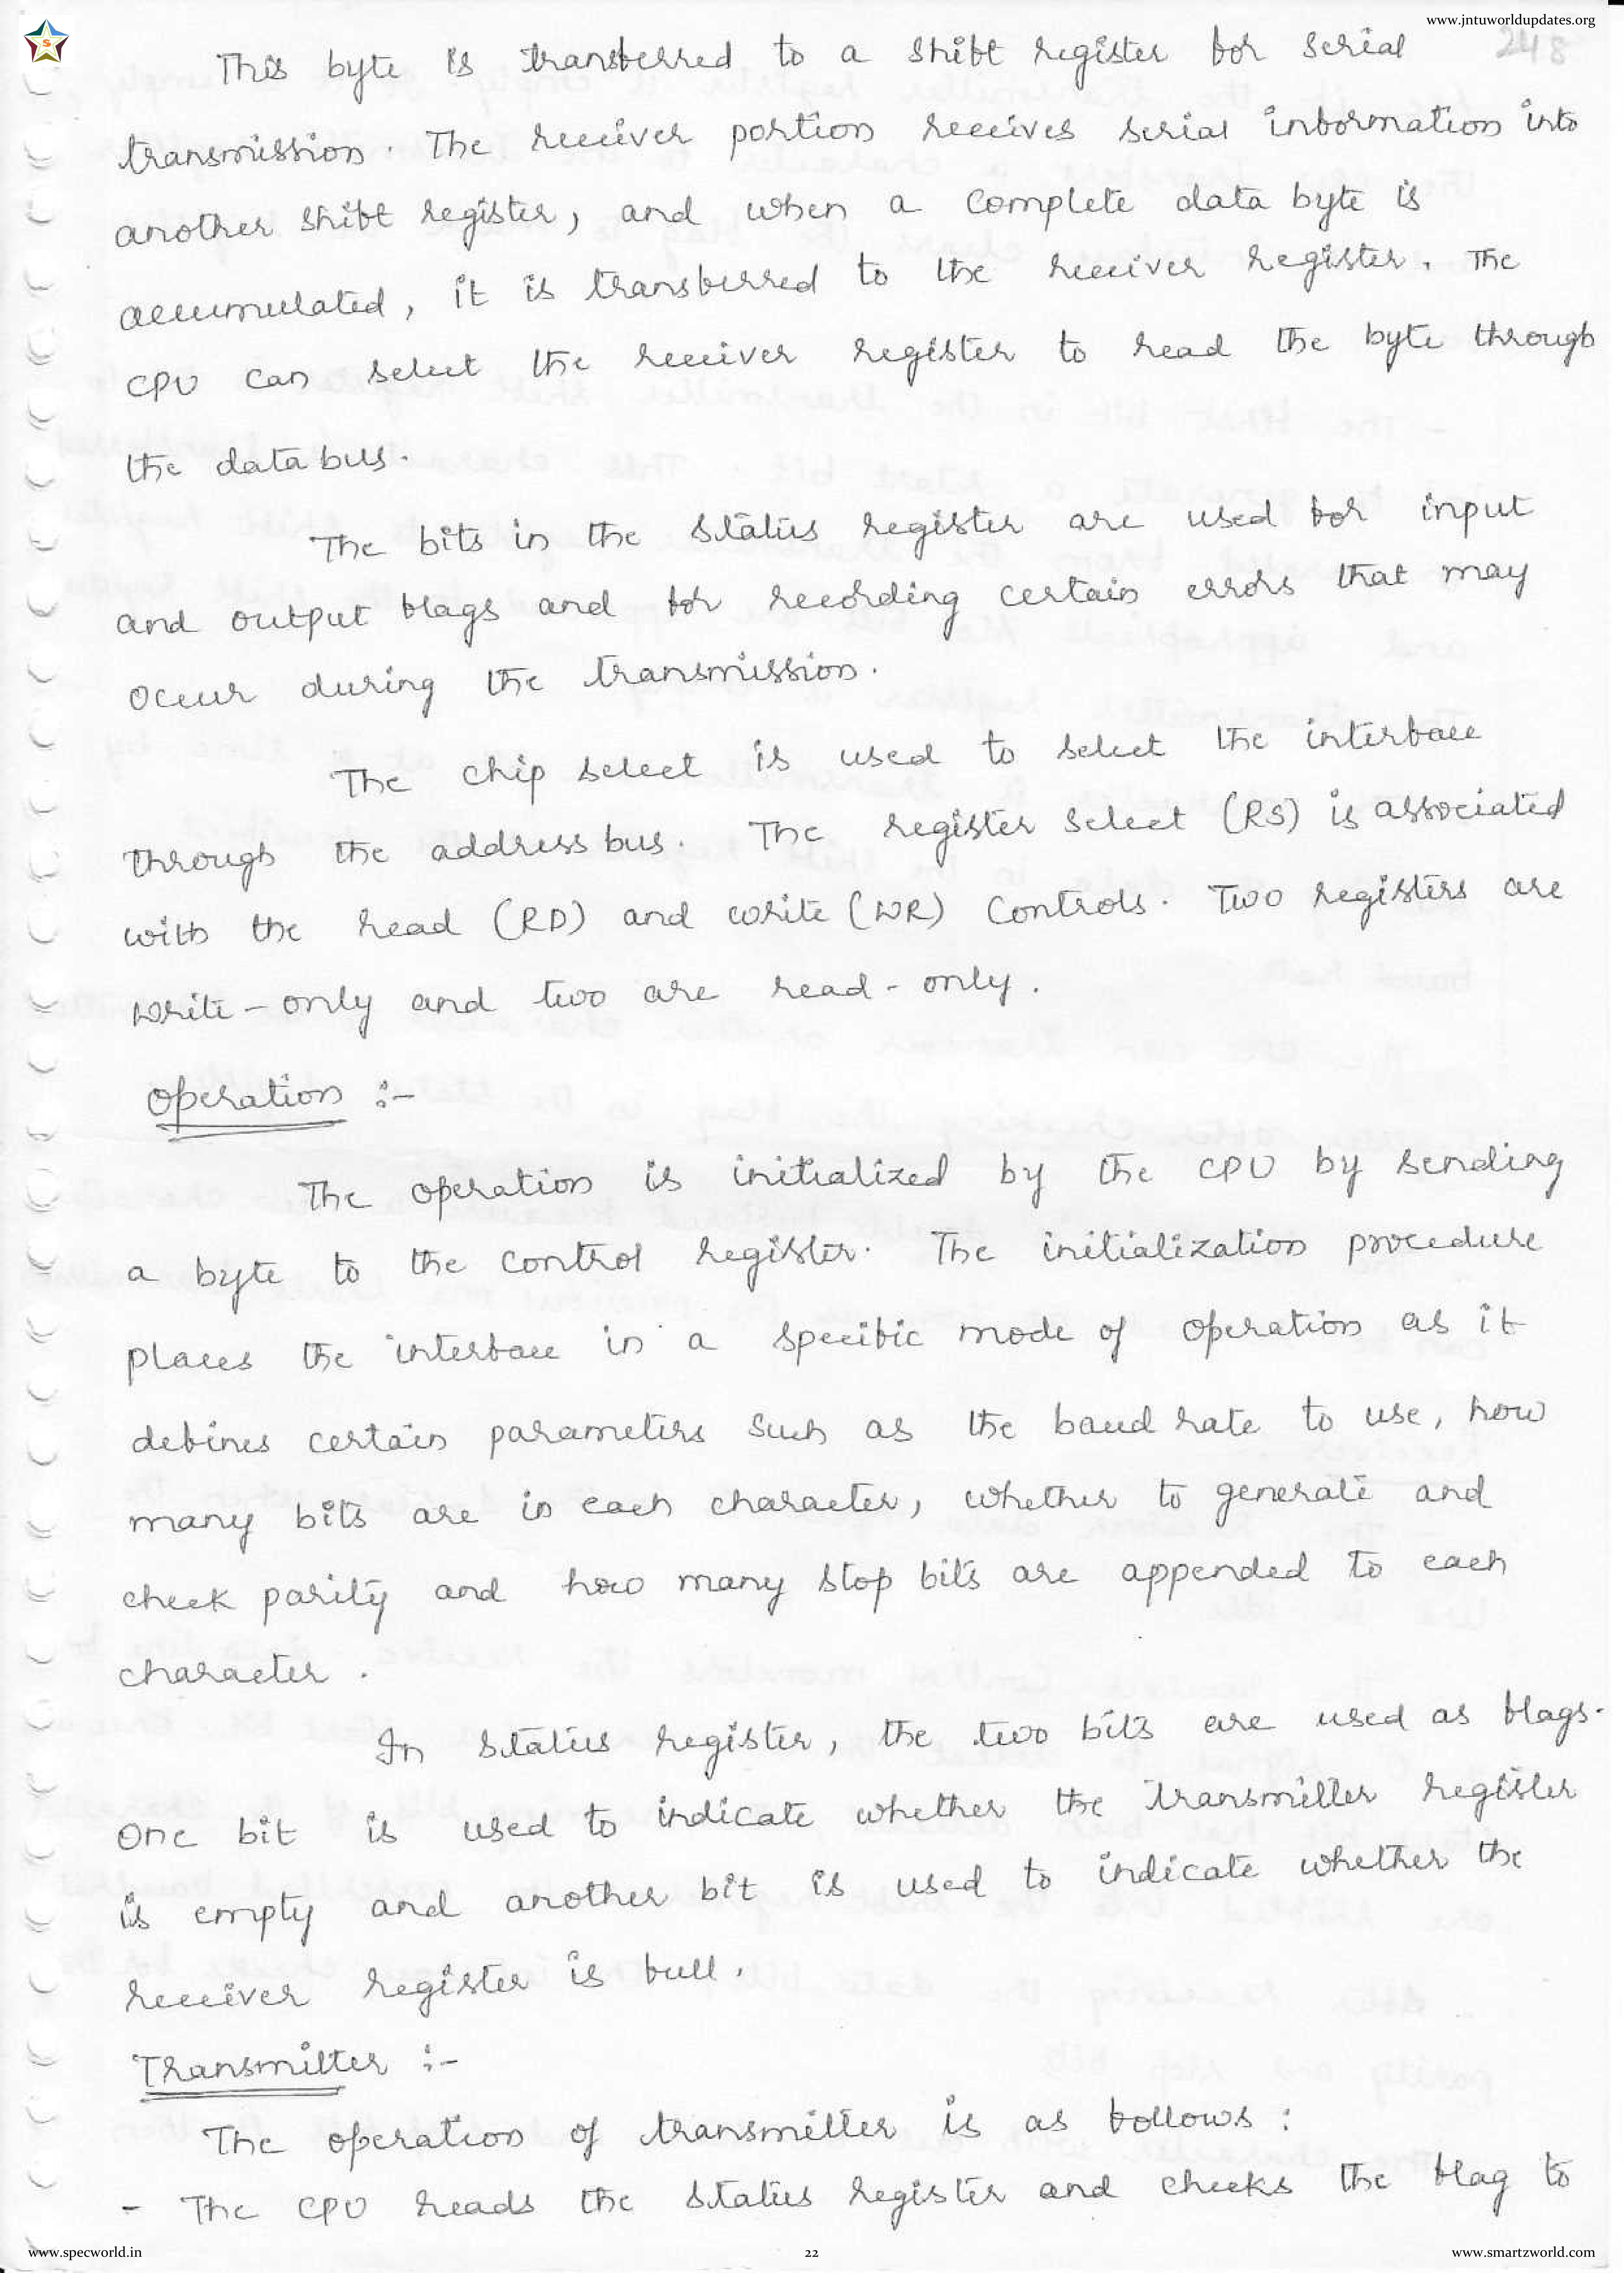 www.jntuworldupdates.org
248
This byte is transferred to a shift register for serial
transmission. The receiver portion receives serial information into
another shift register, and when a complete data byte is
accumulated, it is transferred to the receiver register. The
CPU can select the receiver register to read the byte through
the data bus.
The bits in the status register are used for input
and output flags and for recording certain errors that may
occur during the transmission.
The chip select is used to select the interface
through the address bus. The register select (RS) is associated
with the read (RD) and write (WR) controls. Two registers are
write-only and two are read-only.
Operation :-
The operation is initialized by the CPU by sending
a byte to the control register. The initialization procedure
places the interface in a specific mode of operation as it
defines certain parameters such as the baud rate to use, how
many bits are in each character, whether to generate and
check parity and how many stop bits are appended to each
character.
In status register, the two bits are used as flags.
One bit is used to indicate whether the transmitter register
is empty and another bit is used to indicate whether the
receiver register is full.
Transmitter :-
The operation of transmitter is as follows :
- The CPU reads the status register and checks the flag to
www.specworld.in
22
www.smartzworld.com